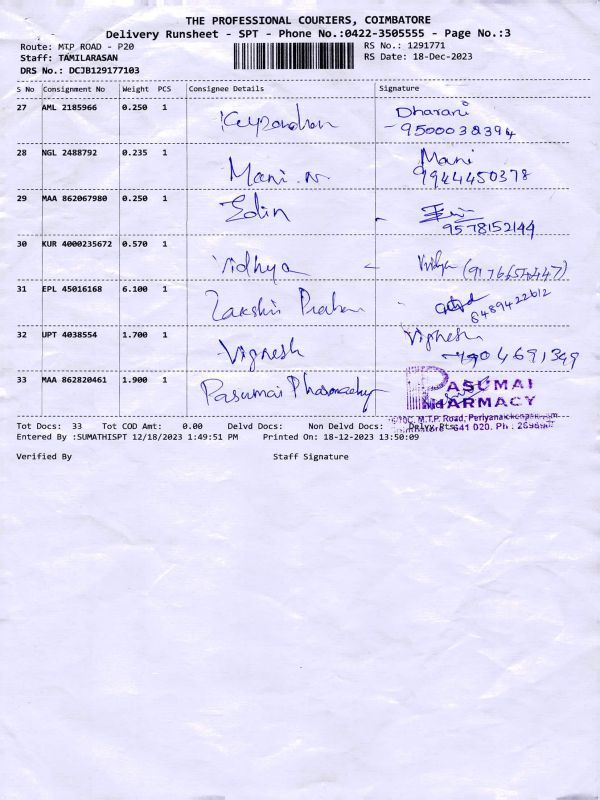 THE PROFESSIONAL COURIERS, COIMBATORE
Delivery Runsheet - SPT - Phone No.:0422-3505555 - Page No.:3
Route: MTP ROAD - P20 RS No.: 1291771
Staff: TAMILARASAN RS Date: 18-Dec-2023
DRS No.: DCJB129177103
S No Consignment No Weight PCS Consignee Details Signature
27 AML 2185966 0.250 1 Dharani
9500038394
28 NGL 2488792 0.235 1 Mani. N Mani
9944450378
29 MAA 862067980 0.250 1 Edin
9578152144
30 KUR 4000235672 0.570 1 Vidhya Vidhya
31 EPL 45016168 6.100 1
8489422612
32 UPT 4038554 1.700 1 Vignesh Vignesh
33 MAA 862820461 1.900 1 Pasumai Pharmacy PASUMAI
PHARMACY
M.T.P. Road,
Tot Docs: 33 Tot COD Amt: 0.00 Delvd Docs: Non Delvd Docs: Delvy Pts:
641 020. Ph :
Entered By :SUMATHISPT 12/18/2023 1:49:51 PM Printed On: 18-12-2023 13:50:09
Verified By Staff Signature